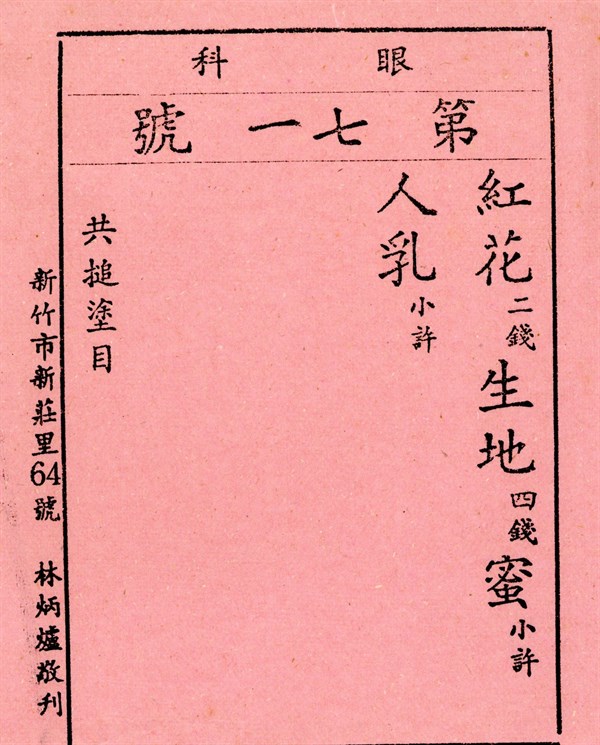 眼科
第七一號
紅花二錢生地四錢蜜小許
人乳小許
共搥塗目
新竹市新莊里64號 林炳爐敬刊